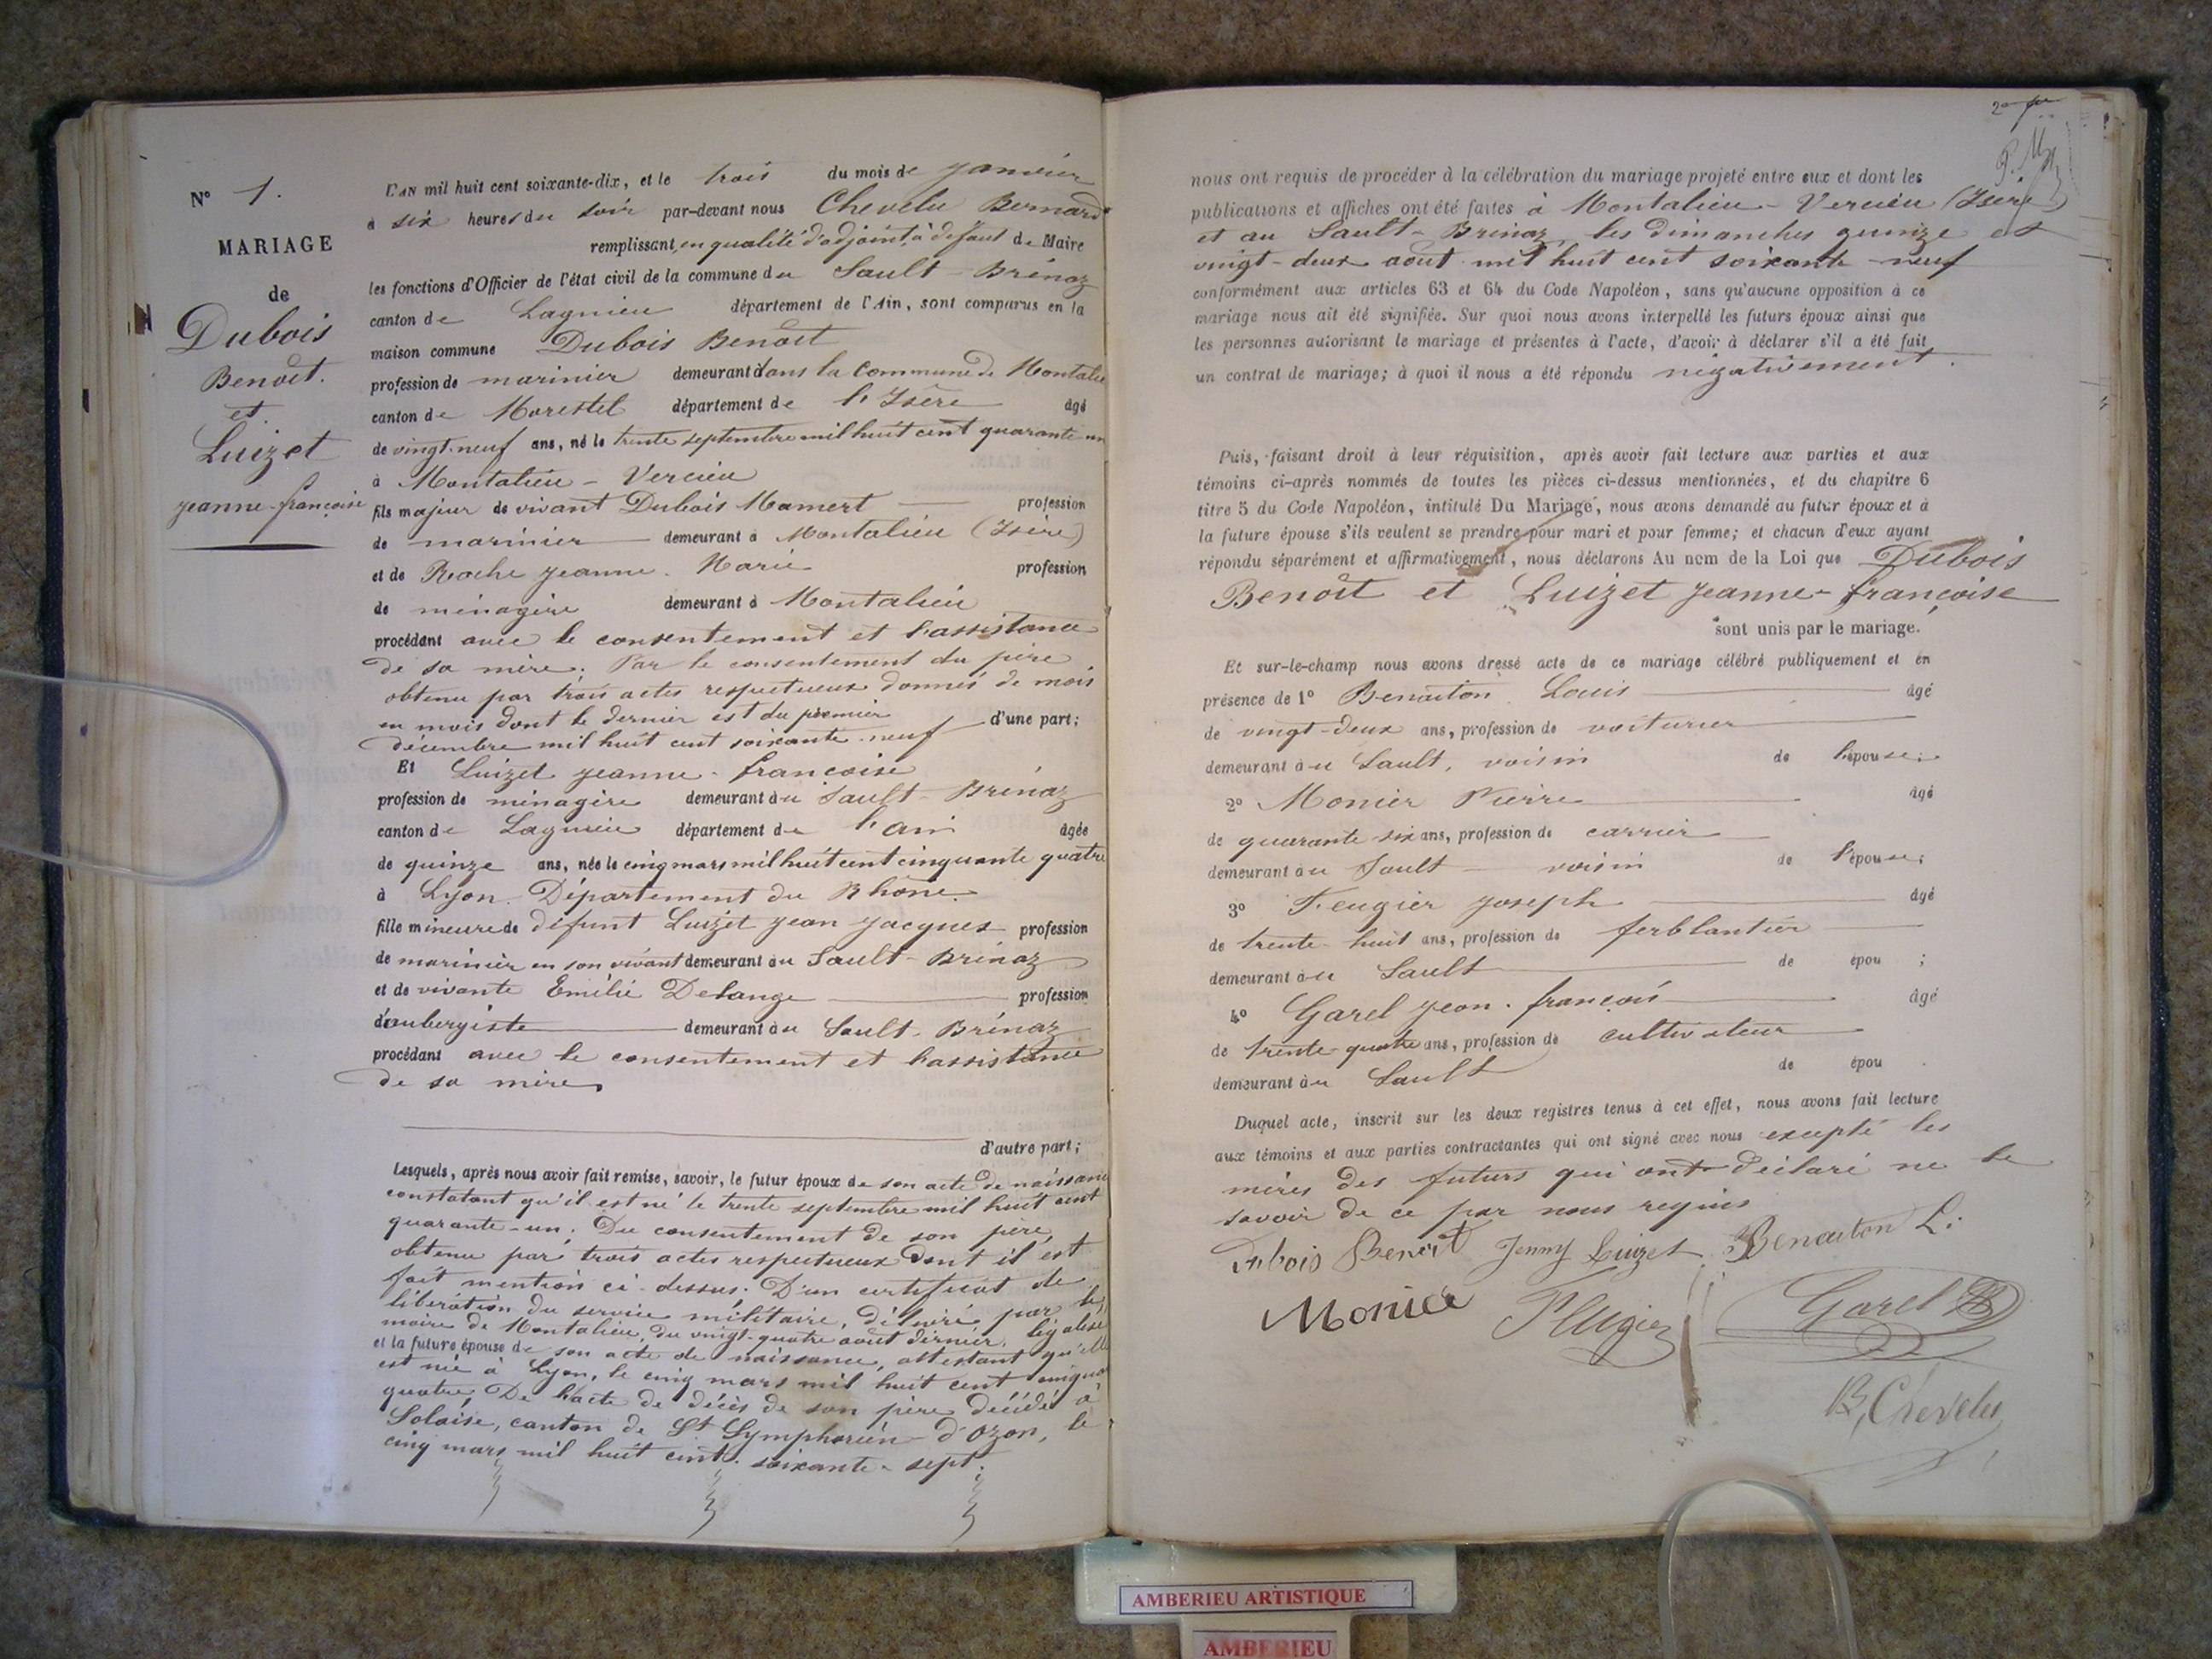 N° 1.
MARIAGE
de
Dubois
Benoit.
et
Luizet
jeanne-françoise
L'AN mil huit cent soixante-dix, et le trois du mois de janvier
à six heures du soir par-devant nous Chevelu Bernard
remplissant, en qualité d'adjoint, à défaut de Maire
les fonctions d'Officier de l'état civil de la commune du Sault-Brénaz
canton de Lagnieu département de l'Ain, sont comparus en la
maison commune Dubois Benoit
profession de marinier demeurant dans la commune de Montalieu
canton de Morestel département de l'Isère âgé
de vingt-neuf ans, né le trente septembre mil huit cent quarante un
à Montalieu-Vercieu
fils majeur de vivant Dubois Mamert profession
de marinier demeurant à Montalieu (Isère)
et de Roche jeanne-Marie profession
de ménagère demeurant à Montalieu
procédant avec le consentement et l'assistance
de sa mère; Par le consentement du père
obtenu par trois actes respectueux donnés de mois
en mois dont le dernier est du premier d'une part;
décembre mil huit cent soixante-neuf
Et Luizet jeanne-françoise
profession de ménagère demeurant du Sault-Brénaz
canton de Lagnieu département de l'ain âgée
de quinze ans, née le cinq mars mil huit cent cinquante quatre
à Lyon. Département du Rhône.
fille mineure de défunt Luizet jean jacques profession
de marinier en son vivant demeurant au Sault-Brénaz
et de vivante Emélie Delange profession
d'aubergiste demeurant au Sault-Brénaz
procédant avec le consentement et l'assistance
de sa mère
d'autre part;
Lesquels, après nous avoir fait remise, savoir, le futur époux de son acte de naissance
constatant qu'il est né le trente septembre mil huit cent
quarante-un; Du consentement de son père,
obtenu par trois actes respectueux dont il est
fait mention ci-dessus; D'un certificat de
libération du service militaire, délivré par le
maire de Montalieu, du vingt-quatre août dernier, légalisé
et la future épouse de son acte de naissance, attestant qu'elle
est née à Lyon, le cinq mars mil huit cent cinquante
quatre, De l'acte de décès de son père décédé à
Solaise, canton de St Symphorien-d'Ozon, le
cinq mars mil huit cent soixante-sept.
nous ont requis de procéder à la célébration du mariage projeté entre eux et dont les
publications et affiches ont été faites à Montalieu-Vercieu (Isère)
et au Sault-Brénaz, les dimanches quinze et
vingt-deux août mil huit cent soixante-neuf
conformément aux articles 63 et 64 du Code Napoléon, sans qu'aucune opposition à ce
mariage nous ait été signifiée. Sur quoi nous avons interpellé les futurs époux ainsi que
les personnes autorisant le mariage et présentes à l'acte, d'avoir à déclarer s'il a été fait
un contrat de mariage; à quoi il nous a été répondu négativement.
Puis, faisant droit à leur réquisition, après avoir fait lecture aux parties et aux
témoins ci-après nommés de toutes les pièces ci-dessus mentionnées, et du chapitre 6
titre 5 du Code Napoléon, intitulé Du Mariage, nous avons demandé au futur époux et à
la future épouse s'ils veulent se prendre pour mari et pour femme; et chacun d'eux ayant
répondu séparément et affirmativement, nous déclarons Au nom de la Loi que Dubois
Benoit et Luizet jeanne-françoise
sont unis par le mariage.
Et sur-le-champ nous avons dressé acte de ce mariage célébré publiquement et en
présence de 1° Benaiton Louis âgé
de vingt-deux ans, profession de voiturier
demeurant au Sault, voisin de l'épouse;
2° Monier Pierre âgé
de quarante six ans, profession de carrier
demeurant au Sault voisin de l'épouse;
3° Feugier joseph âgé
de trente-huit ans, profession de ferblantier
demeurant au Sault de épou ;
4° Garel jean-françois âgé
de trente-quatre ans, profession de cultivateur
demeurant au Sault de épou .
Duquel acte, inscrit sur les deux registres tenus à cet effet, nous avons fait lecture
aux témoins et aux parties contractantes qui ont signé avec nous excepté les
mères des futurs qui ont déclaré ne le
savoir de ce par nous requis
Dubois Benoit Jenny Luizet Benaiton L.
Monier Feugier Garel
B, Chevelu
AMBERIEU ARTISTIQUE
AMBERIEU